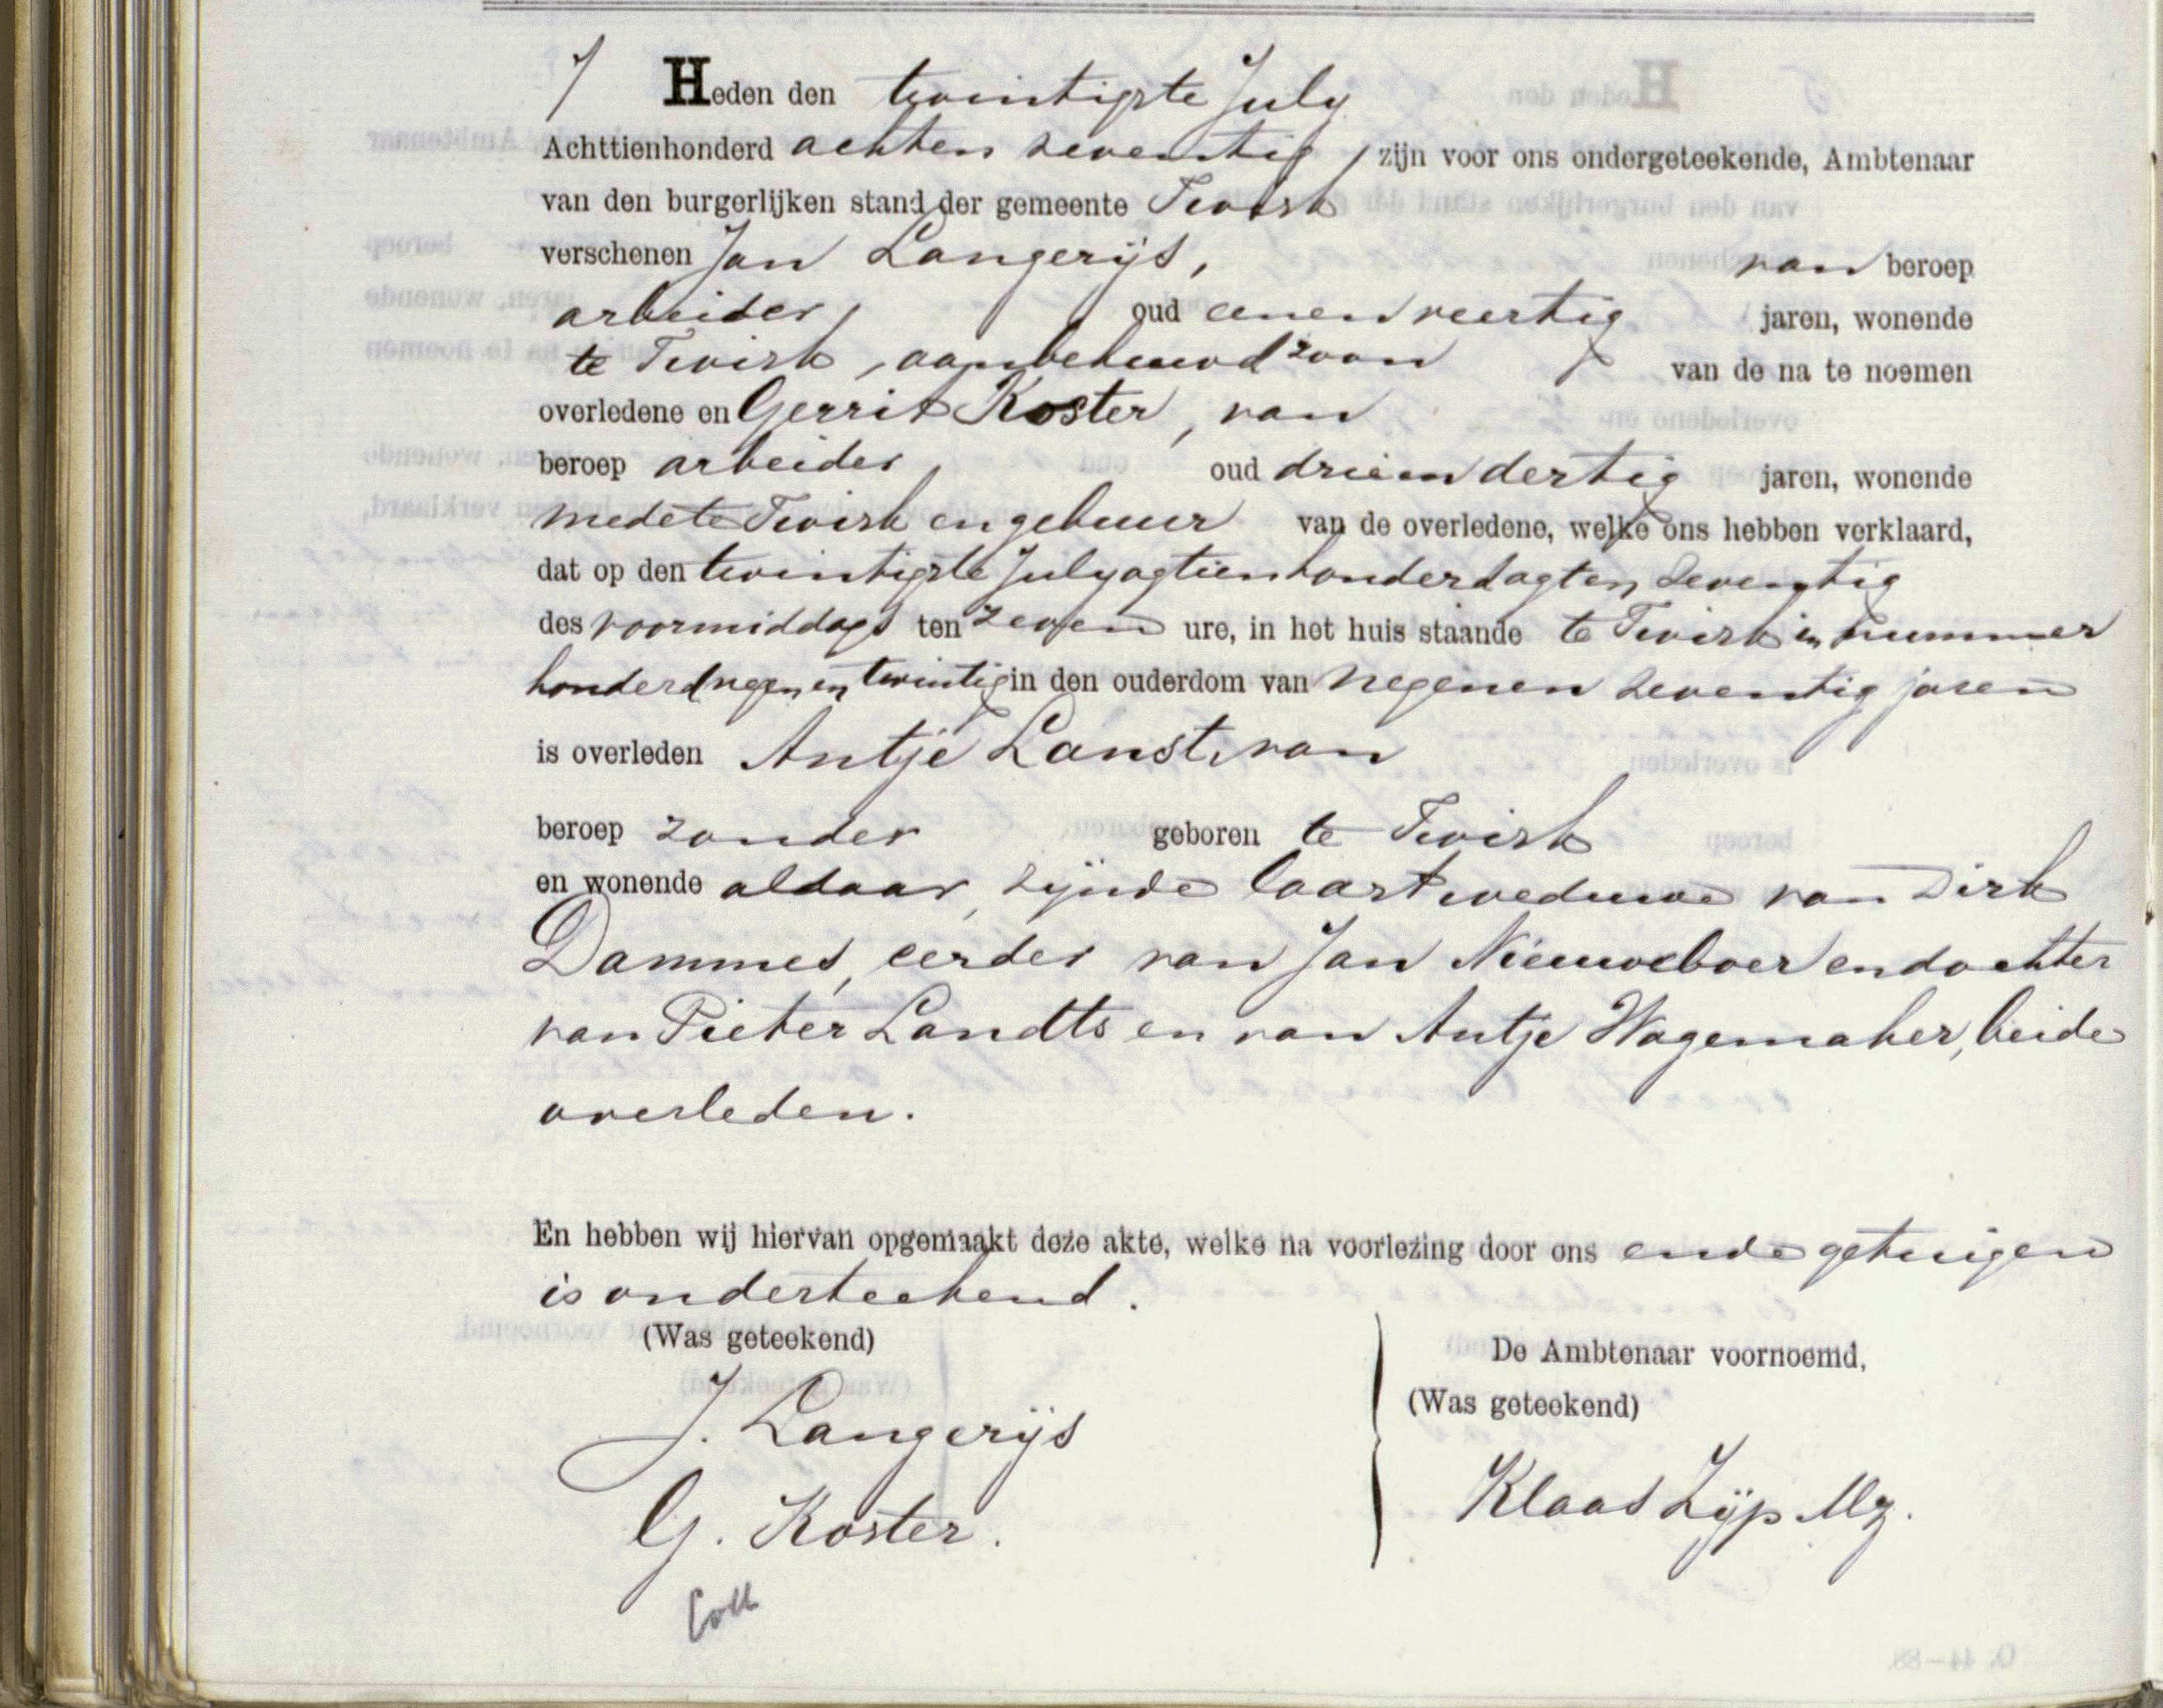 7 Heden den twintigste July
Achttienhonderd achten seventig, zijn voor ons ondergeteekende, Ambtenaar
van den burgerlijken stand der gemeente Twisk
verschenen Jan Langerijs, van beroep
arbeider, oud eenenveertig jaren, wonende
te Twisk, aanbehuwdzoon van de na te noemen
overledene en Gerrit Koster, van
beroep arbeider, oud drieendertig jaren, wonende
mede te Twisk en gebuur van de overledene, welke ons hebben verklaard,
dat op den twintigste July agtienhonderdagten seventig
des voormiddags ten zeven ure, in het huis staande te Twisk in nummer
honderdnegen en twintig in den ouderdom van negenen seventig jaren
is overleden Antje Lanst, van
beroep zonder geboren te Twisk
en wonende aldaar, zijnde laatst weduwe van Dirk
Dammes, eerder van Jan Nieuweboer en dochter
van Pieter Landts en van Antje Wagemaker, beide
overleden.
En hebben wij hiervan opgemaakt deze akte, welke na voorlezing door ons en de getuigen
is onderteekend.
(Was geteekend)
De Ambtenaar voornoemd,
(Was geteekend)
J. Langerijs
G. Koster.
Klaas Zijp Mz.
Coll